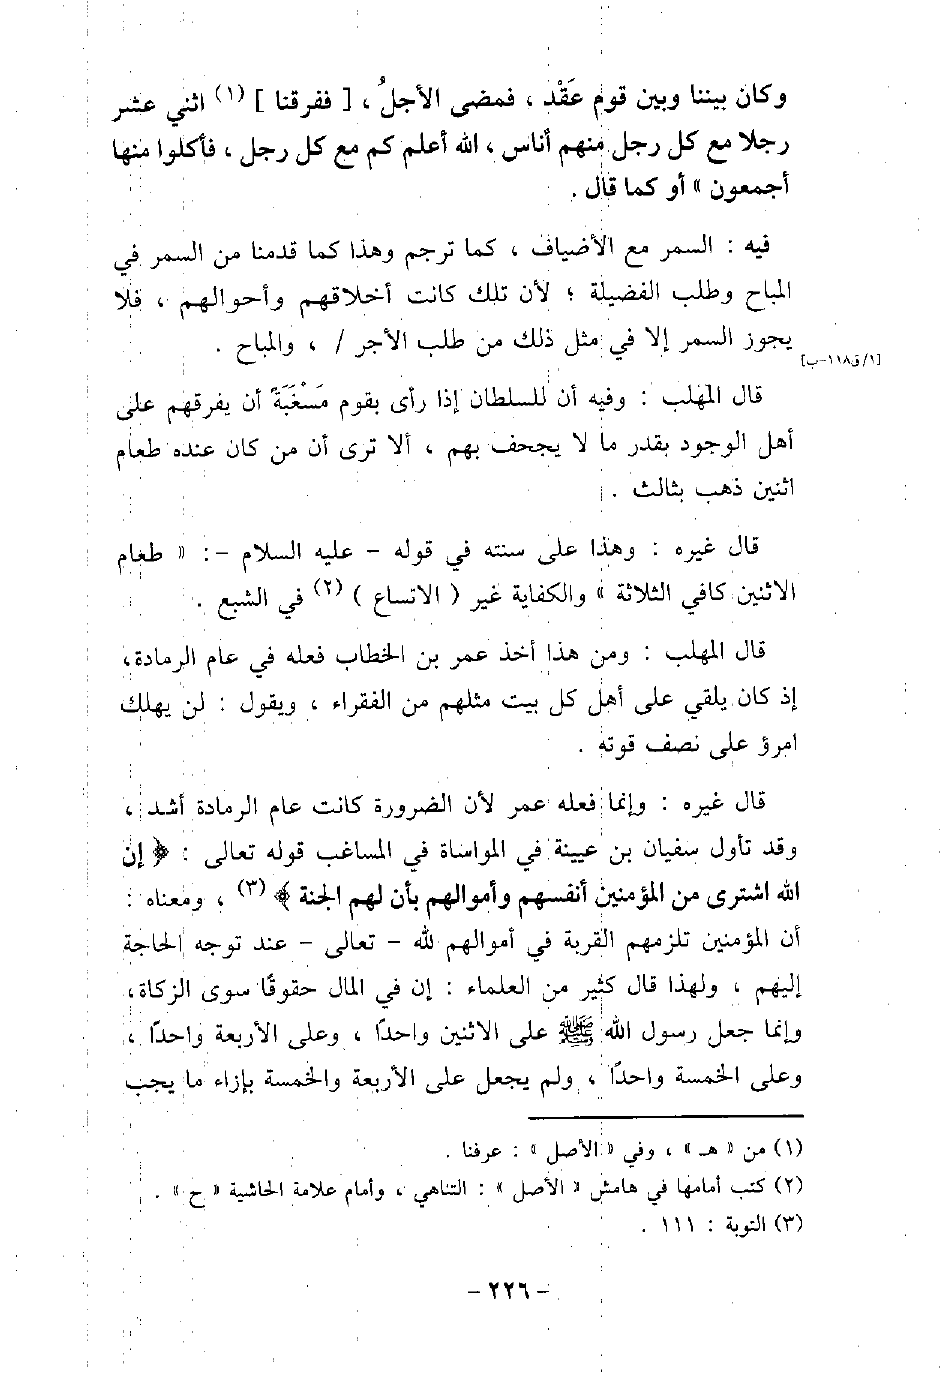 وكان بيننا وبين قوم عَقْد ، فمضى الأجلُ ، [ ففرقنا ] (١) اثني عشر
رجلا مع كل رجل منهم أناس ، الله أعلم كم مع كل رجل ، فأكلوا منها
أجمعون » أو كما قال .
فيه : السمر مع الأضياف ، كما ترجم وهذا كما قدمنا من السمر في
المباح وطلب الفضيلة ؛ لأن تلك كانت أخلاقهم وأحوالهم ، فلا
يجوز السمر إلا في مثل ذلك من طلب الأجر / ، والمباح .
[١/ق١١٨-ب]
قال المهلب : وفيه أن للسلطان إذا رأى بقوم مَسْغَبَةً أن يفرقهم على
أهل الوجود بقدر ما لا يجحف بهم ، ألا ترى أن من كان عنده طعام
اثنين ذهب بثالث .
قال غيره : وهذا على سنته في قوله - عليه السلام - : « طعام
الاثنين كافي الثلاثة » والكفاية غير ( الاتساع ) (٢) في الشبع .
قال المهلب : ومن هذا أخذ عمر بن الخطاب فعله في عام الرمادة،
إذ كان يلقي على أهل كل بيت مثلهم من الفقراء ، ويقول : لن يهلك
امرؤ على نصف قوته .
قال غيره : وإنما فعله عمر لأن الضرورة كانت عام الرمادة أشد ،
وقد تأول سفيان بن عيينة في المواساة في المساغب قوله تعالى : ﴿ إن
الله اشترى من المؤمنين أنفسهم وأموالهم بأن لهم الجنة ﴾ (٣) ، ومعناه :
أن المؤمنين تلزمهم القربة في أموالهم لله - تعالى - عند توجه الحاجة
إليهم ، ولهذا قال كثير من العلماء : إن في المال حقوقًا سوى الزكاة،
وإنما جعل رسول الله ﷺ على الاثنين واحدًا ، وعلى الأربعة واحدًا ،
وعلى الخمسة واحدًا ، ولم يجعل على الأربعة والخمسة بإزاء ما يجب
(١) من « هـ » ، وفي « الأصل » : عرفنا .
(٢) كتب أمامها في هامش « الأصل » : التناهي ، وأمام علامة الحاشية « ح » .
(٣) التوبة : ١١١ .
- ٢٢٦ -